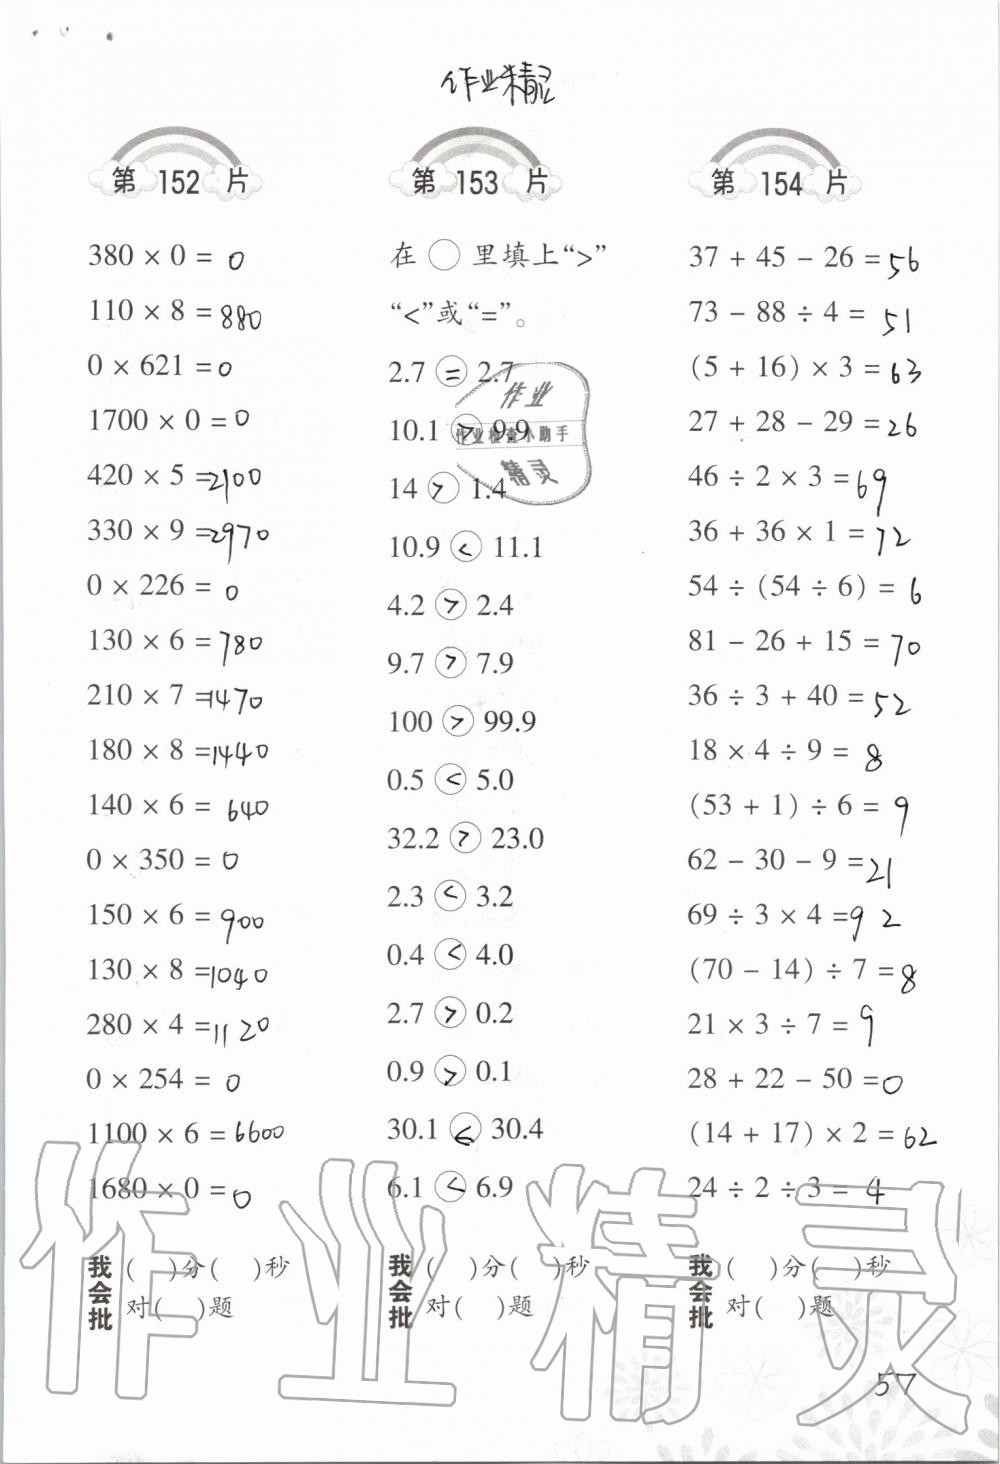 作业精灵
第 152 片
380 × 0 = 0
110 × 8 = 880
0 × 621 = 0
1700 × 0 = 0
420 × 5 = 2100
330 × 9 = 2970
0 × 226 = 0
130 × 6 = 780
210 × 7 = 1470
180 × 8 = 1440
140 × 6 = 640
0 × 350 = 0
150 × 6 = 900
130 × 8 = 1040
280 × 4 = 1120
0 × 254 = 0
1100 × 6 = 6600
1680 × 0 = 0
我会批
(  )分(  )秒
对(  )题
第 153 片
在 ○ 里填上“>”
“<”或“=”。
2.7 = 2.7
10.1 > 9.9
14 > 1.4
10.9 < 11.1
4.2 > 2.4
9.7 > 7.9
100 > 99.9
0.5 < 5.0
32.2 > 23.0
2.3 < 3.2
0.4 < 4.0
2.7 > 0.2
0.9 > 0.1
30.1 < 30.4
6.1 < 6.9
我会批
(  )分(  )秒
对(  )题
第 154 片
37 + 45 − 26 = 56
73 − 88 ÷ 4 = 51
(5 + 16) × 3 = 63
27 + 28 − 29 = 26
46 ÷ 2 × 3 = 69
36 + 36 × 1 = 72
54 ÷ (54 ÷ 6) = 6
81 − 26 + 15 = 70
36 ÷ 3 + 40 = 52
18 × 4 ÷ 9 = 8
(53 + 1) ÷ 6 = 9
62 − 30 − 9 = 21
69 ÷ 3 × 4 = 92
(70 − 14) ÷ 7 = 8
21 × 3 ÷ 7 = 9
28 + 22 − 50 = 0
(14 + 17) × 2 = 62
24 ÷ 2 ÷ 3 = 4
我会批
(  )分(  )秒
对(  )题
57
作业
作业检查小助手
精灵
作业精灵